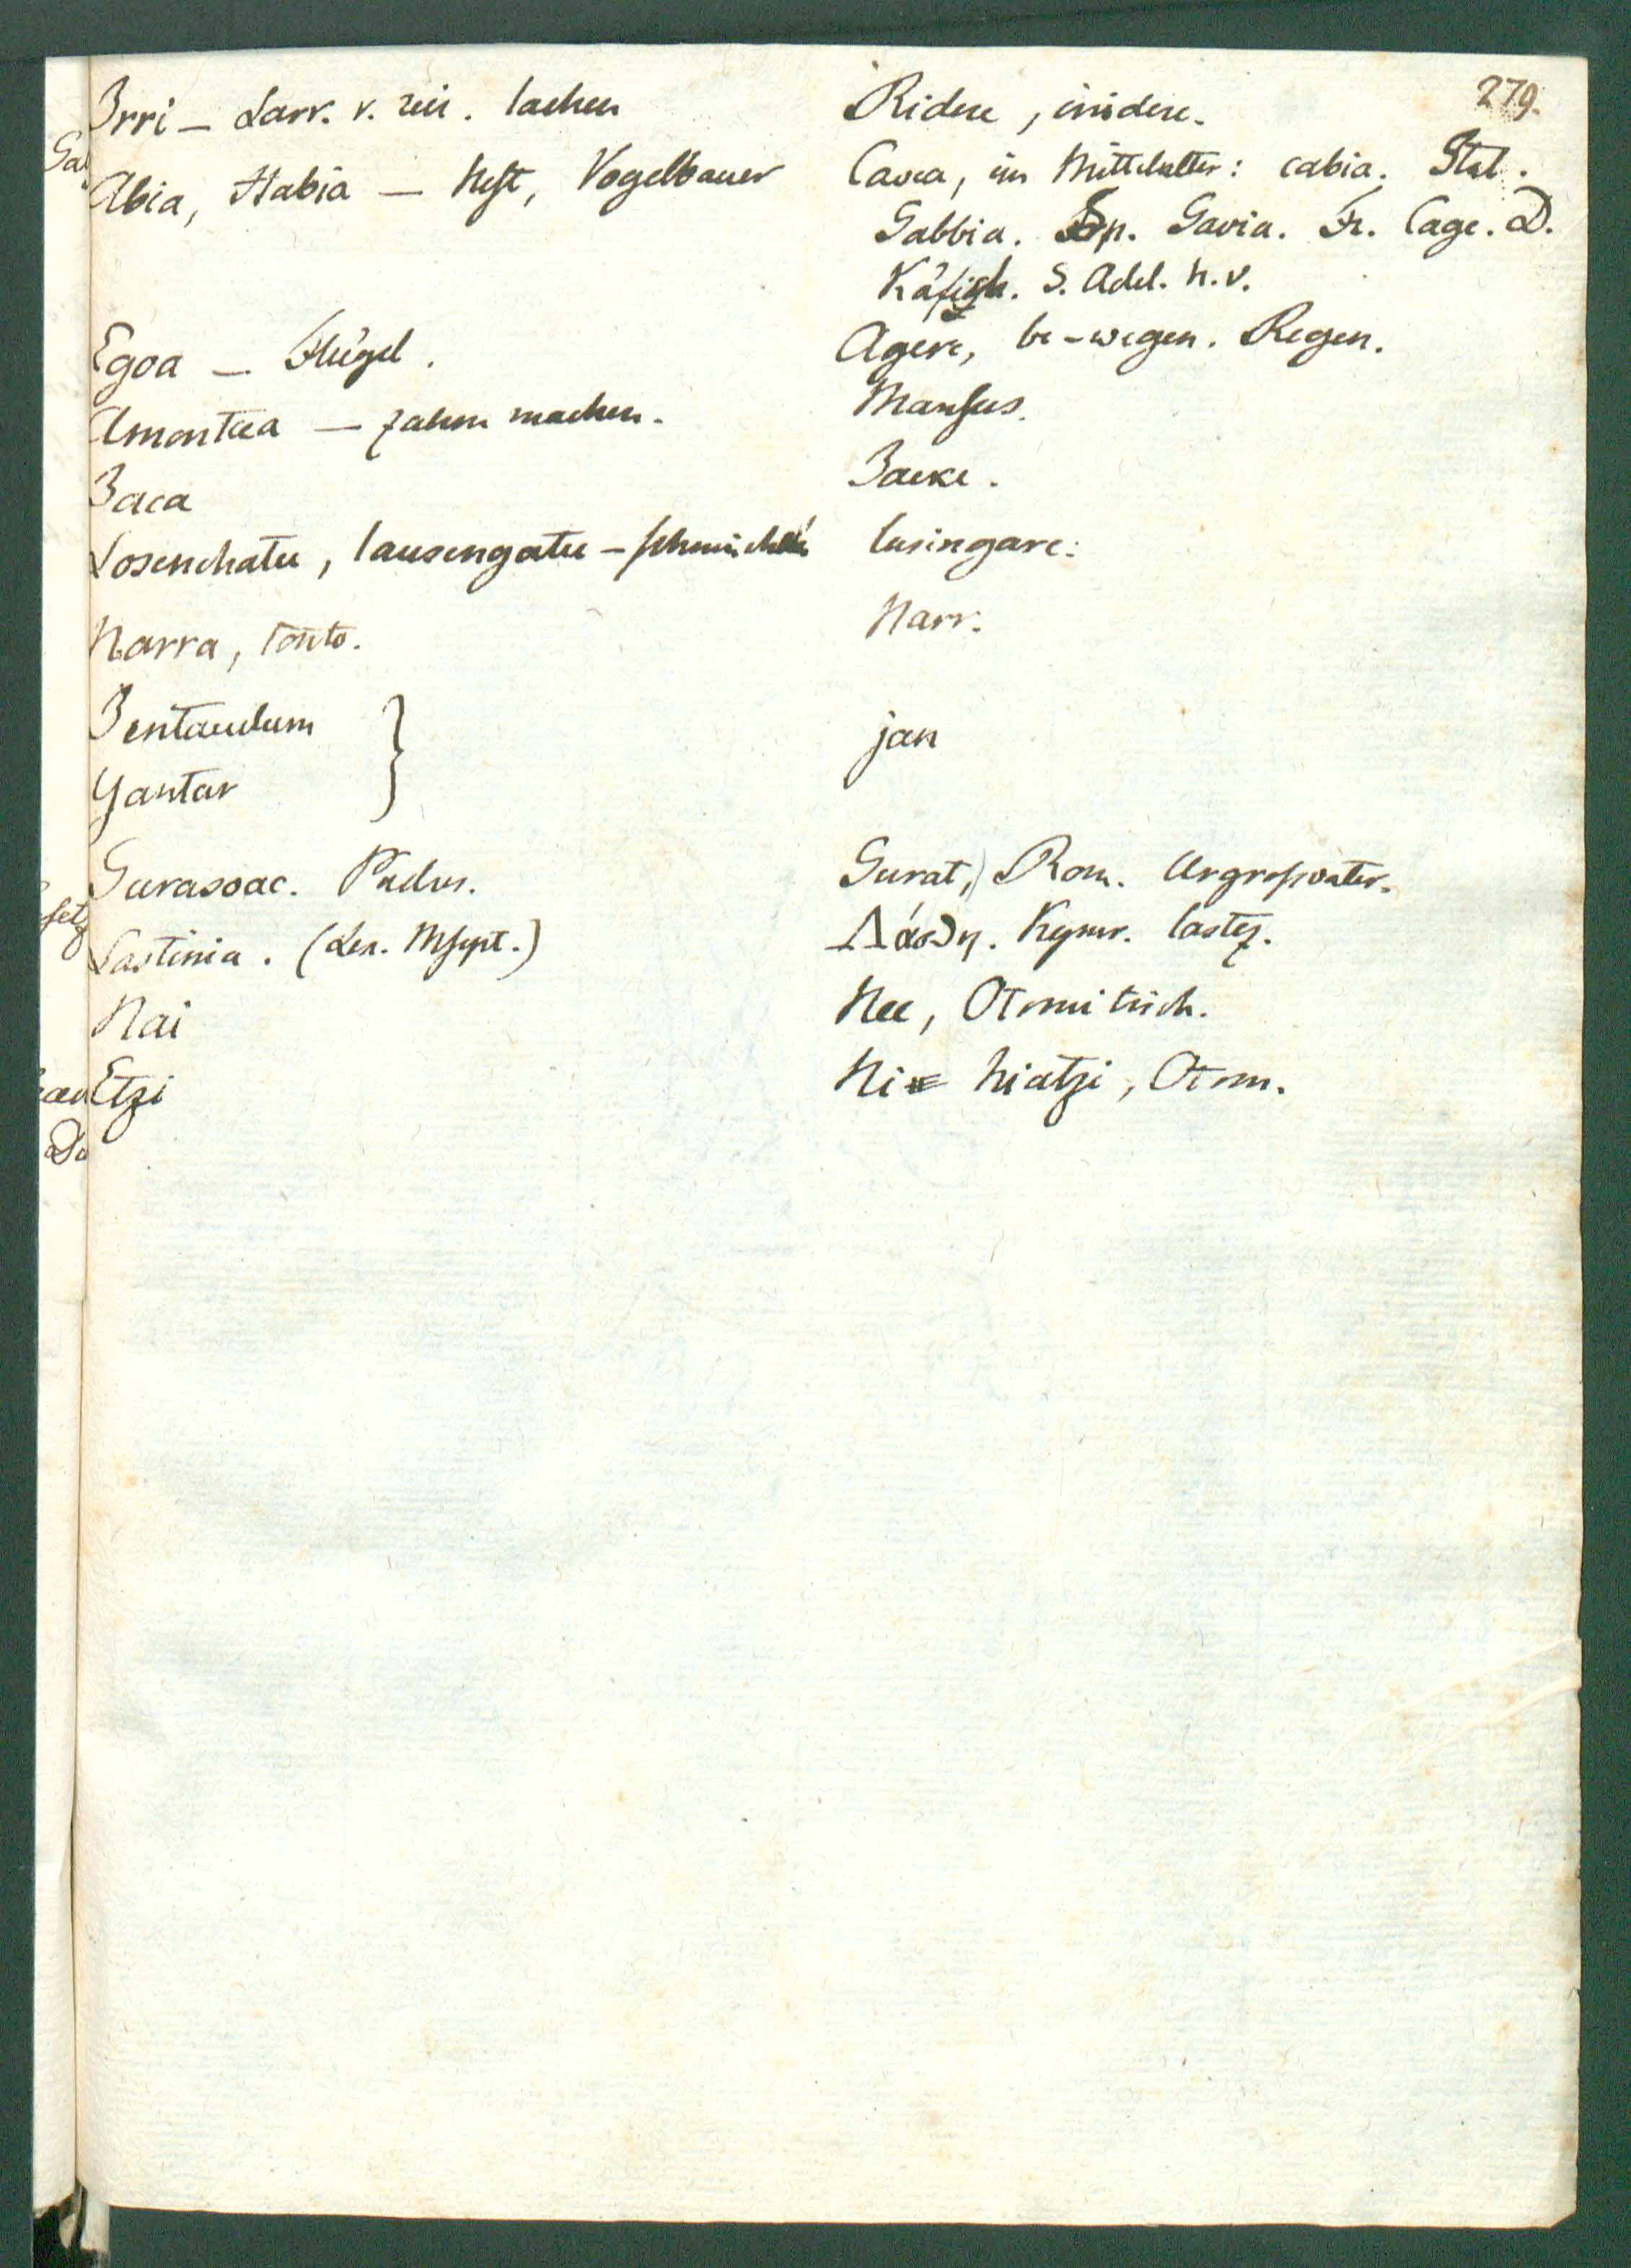 279.
Irri – Larr. v. reir. lachen Ridere, irridere.
Abia, Habia – Nest, Vogelbauer Cavea, im Mittelalter: cabia. Ital.
Gabbia. Sp. Gavia. Fr. Cage. D.
Käfich. S. Adel. h. v.
Egoa – Flügel. Agere, be-wegen. Regen.
Amontua – zahm machen. Mansues.
Zaca Zacke.
Losenchatu, lausengatu – schmeicheln lusingare.
Narra, tonto. Narr.
Zentaudum
Yantar } jan
Gurasoac. Padres. Gurat, Rom. Urgrosvater.
Lastinia. (Lex. Mscpt.) Λάσθη. Kymr. lastez.
Nai Nee, Otomitisch.
Etzi Ni hiatzi, Otom.